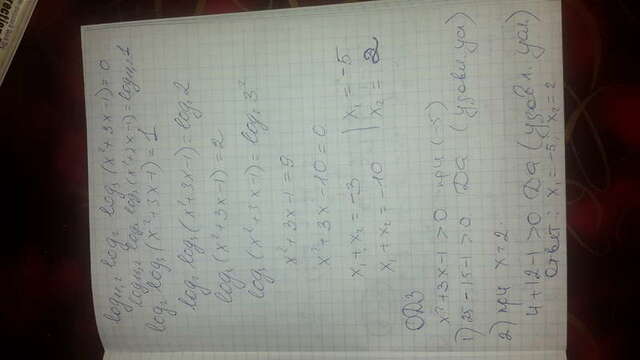 log₁₁,₂ log₂ log₃ (x²+3x-1)=0
log₁₁,₂ log₂ log₃ (x²+3x-1)=log₁₁,₂ 1
log₂ log₃ (x²+3x-1)=1
log₂ log₃ (x²+3x-1)=log₂ 2
log₃ (x²+3x-1)=2
log₃ (x²+3x-1)=log₃ 3²
x²+3x-1=9
x²+3x-10=0
x₁+x₂=-3 | x₁=-5
x₁+x₂=-10 | x₂=2
ОДЗ
x²+3x-1>0 при (-5)
1) 25-15-1>0 Да (удовл. усл)
2) при x=2.
4+12-1>0 Да (удовл. усл.
Ответ: x₁=-5, x₂=2